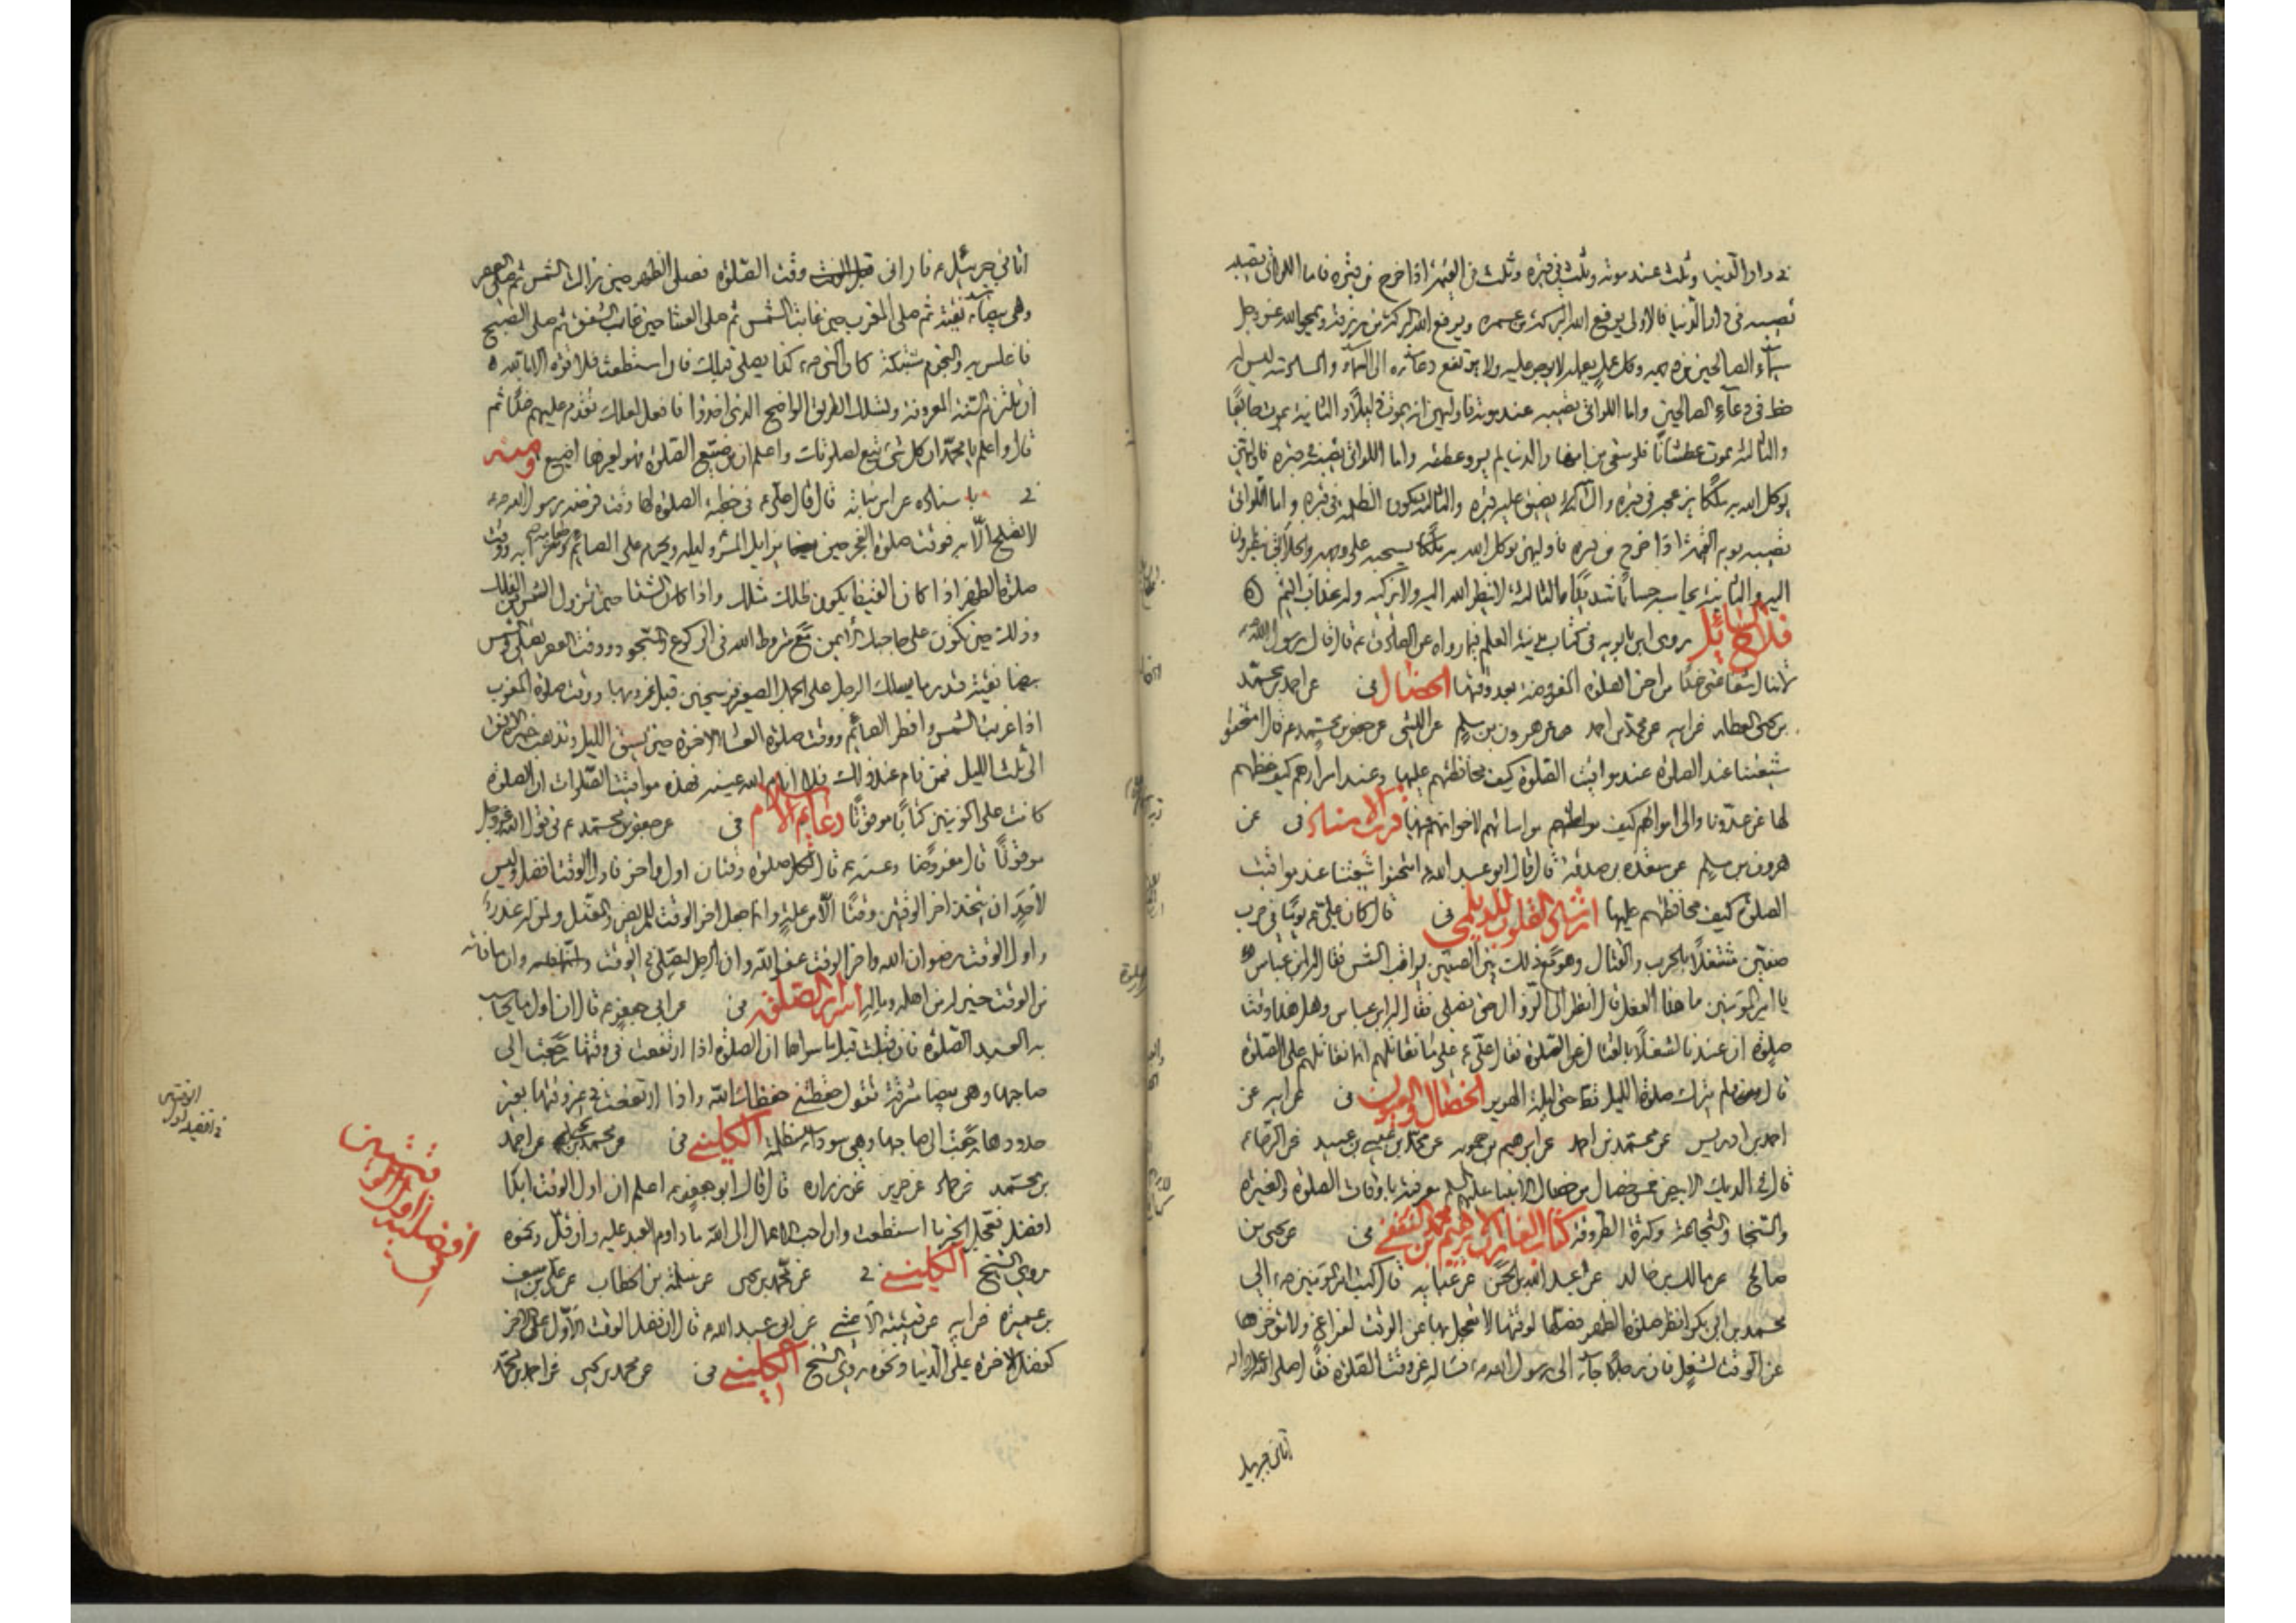 في دار الدنيا وثلث عند موته وثلث في قبره وثلث في القيمة اذا خرج من قبره فاما اللواتي تصيبه
تصيبه في دار الدنيا فالاولى يرفع الله البركة من عمره ويرفع الله البركة من رزقه ويمحو الله عز وجل
سيماء الصالحين من وجهه وكل عمل يعمله لا يوجر عليه ولا يرتفع دعاؤه الى السماء والسادسة ليس له
حظ في دعاء الصالحين واما اللواتي تصيبه عند موته فاولهن انه يموت ذليلا والثانية يموت جايعا
والثالثة يموت عطشانا فلو سقي من انهار الدنيا لم يرو عطشه واما اللواتي تصيبه في قبره فاولهن
يوكل الله به ملكا يزعجه في قبره والثانية يضيق عليه قبره والثالثة يكون الظلمة في قبره واما اللواتي
تصيبه يوم القيمة اذا خرج من قبره فاولهن يوكل الله به ملكا يسحبه على وجهه والخلائق ينظرون
اليه والثانية يحاسبه حسابا شديدا والثالثة لا ينظر الله اليه ولا يزكيه وله عذاب اليم
فلاح السائل روى ابن بابويه في كتاب مدينة العلم فيما رواه عن الصادق ع قال قال رسول الله ص
لا ينال شفاعتي غدا من اخر الصلوة المفروضة بعد وقتها الخصال في عن احمد بن محمد
بن يحيى العطار عن ابيه عن محمد بن احمد عن هرون بن مسلم عن الليثي عن جعفر بن محمد ع قال امتحنوا
شيعتنا عند الصلوة عند مواقيت الصلوة كيف محافظتهم عليها وعند اسرارهم كيف حفظهم
لها عن عدونا والى اموالهم كيف مواساتهم لاخوانهم فيها قرب الاسناد في عن
هرون بن مسلم عن مسعدة بن صدقة قال قال ابو عبد الله ع امتحنوا شيعتنا عند مواقيت
الصلوة كيف محافظتهم عليها ارشاد القلوب للديلمي في قال كان علي ع يوما في حرب
صفين مشتغلا بالحرب والقتال وهو مع ذلك بين الصفين يراقب الشمس فقال له ابن عباس
يا امير المؤمنين ما هذا الفعل قال انظر الى الزوال حتى نصلي فقال له ابن عباس وهل هذا وقت
صلوة ان عندنا لشغلا بالقتال عن الصلوة فقال علي ع على ما نقاتلهم انما نقاتلهم على الصلوة
قال ولم يترك صلوة الليل قط حتى ليلة الهرير الخصال والعيون في عن ابيه عن
احمد بن ادريس عن محمد بن احمد عن ابرهيم بن حمويه عن محمد بن عيسى بن عبيد عن الرضا ع
قال في الديك الابيض خمس خصال من خصال الانبيا عليهم السلم معرفته باوقات الصلوة والغيرة
والسخا والشجاعة وكثرة الطروقة كتاب الغارات لابرهيم بن محمد الثقفي في عن يحيى بن
صالح عن مالك بن خالد عن عبد الله بن الحسن عن عباية قال كتب امير المؤمنين ع الى
محمد بن ابي بكر انظر صلوة الظهر فصلها لوقتها لا تعجل بها عن الوقت لفراغ ولا تؤخرها
عن الوقت لشغل فان رجلا جاء الى رسول الله ص فساله عن وقت الصلوة فقال صلى الله عليه واله
اتاني جبريل
اتاني جبرئيل ع فاراني وقت الصلوة فصلى الظهر حين زالت الشمس ثم صلى العصر
وهي بيضاء نقية ثم صلى المغرب حين غابت الشمس ثم صلى العشا حين غاب الشفق ثم صلى الصبح
فاغلس به والنجوم مشتبكة كان النبي ص كذا يصلي قبلك فان استطعت ولا قوة الا بالله
ان تلتزم السنة المعروفة وتسلك الطريق الواضح الذي اخذوا فافعل لعلك تقدم عليهم غدا ثم
قال واعلم يا محمد ان كل شئ تبع لصلوتك واعلم ان من ضيع الصلوة فهو لغيرها اضيع ومنه
في باسناده عن ابن نباتة قال قال علي ع في خطبة الصلوة لها وقت فرضه رسول الله ص
لا تصلح الا به فوقت صلوة الفجر حين يزايل المرء ليله ويحرم على الصائم طعامه وشرابه ووقت
صلوة الظهر اذا كان القيظ يكون ظلك مثلك واذا كان الشتا حين تزول الشمس من الفلك
وذلك حين تكون على حاجبك الايمن مع شروط الله في الركوع والسجود ووقت العصر تصلي والشمس
بيضا نقية قدر ما يسلك الرجل على الجمل الصعير فرسخين قبل غروبها ووقت صلوة المغرب
اذا غربت الشمس وافطر الصائم ووقت صلوة العشاء الاخرة حين يسق الليل وتذهب حمرة الافق
الى ثلث الليل فمن نام عند ذلك فلا انام الله عينه فهذه مواقيت الصلوات ان الصلوة
كانت على المؤمنين كتابا موقوتا دعائم الاسلام في عن جعفر بن محمد ع في قول الله عز وجل
موقوتا قال مفروضا وعنه ع قال لكل صلوة وقتان اول واخر فاول الوقت افضله وليس
لاحد ان يتخذ اخر الوقتين وقتا الا من علة وانما جعل اخر الوقت للمريض والمعتل ولمن له عذر
واول الوقت رضوان الله واخر الوقت عفو الله وان الرجل ليصلي في الوقت وان ما فاته
من الوقت خير له من اهله وماله اسرار الصلوة في عن ابي جعفر ع قال ان اول ما يحاسب
به العبد الصلوة فان قبلت قبل ما سواها ان الصلوة اذا ارتفعت في وقتها رجعت الى
صاحبها وهي بيضا مشرقة تقول حفظتني حفظك الله واذا ارتفعت في غير وقتها بغير
حدودها رجعت الى صاحبها وهي سوداء مظلمة الكليني في عن محمد بن يحيى عن احمد
بن محمد عن حماد عن حريز عن زرارة قال قال ابو جعفر ع اعلم ان اول الوقت ابدا
افضل فعجل الخير ما استطعت وان احب الاعمال الى الله ما داوم العبد عليه وان قل ونحوه
روى الشيخ الكليني في عن محمد بن يحيى عن سلمة بن الخطاب عن علي بن سيف
بن عميرة عن ابيه عن قتيبة الاعشى عن ابي عبد الله ع قال ان فضل الوقت الاول على الاخر
كفضل الاخرة على الدنيا ونحوه روى الشيخ الكليني في عن محمد بن يحيى عن احمد بن محمد
افضلية اول الوقتين